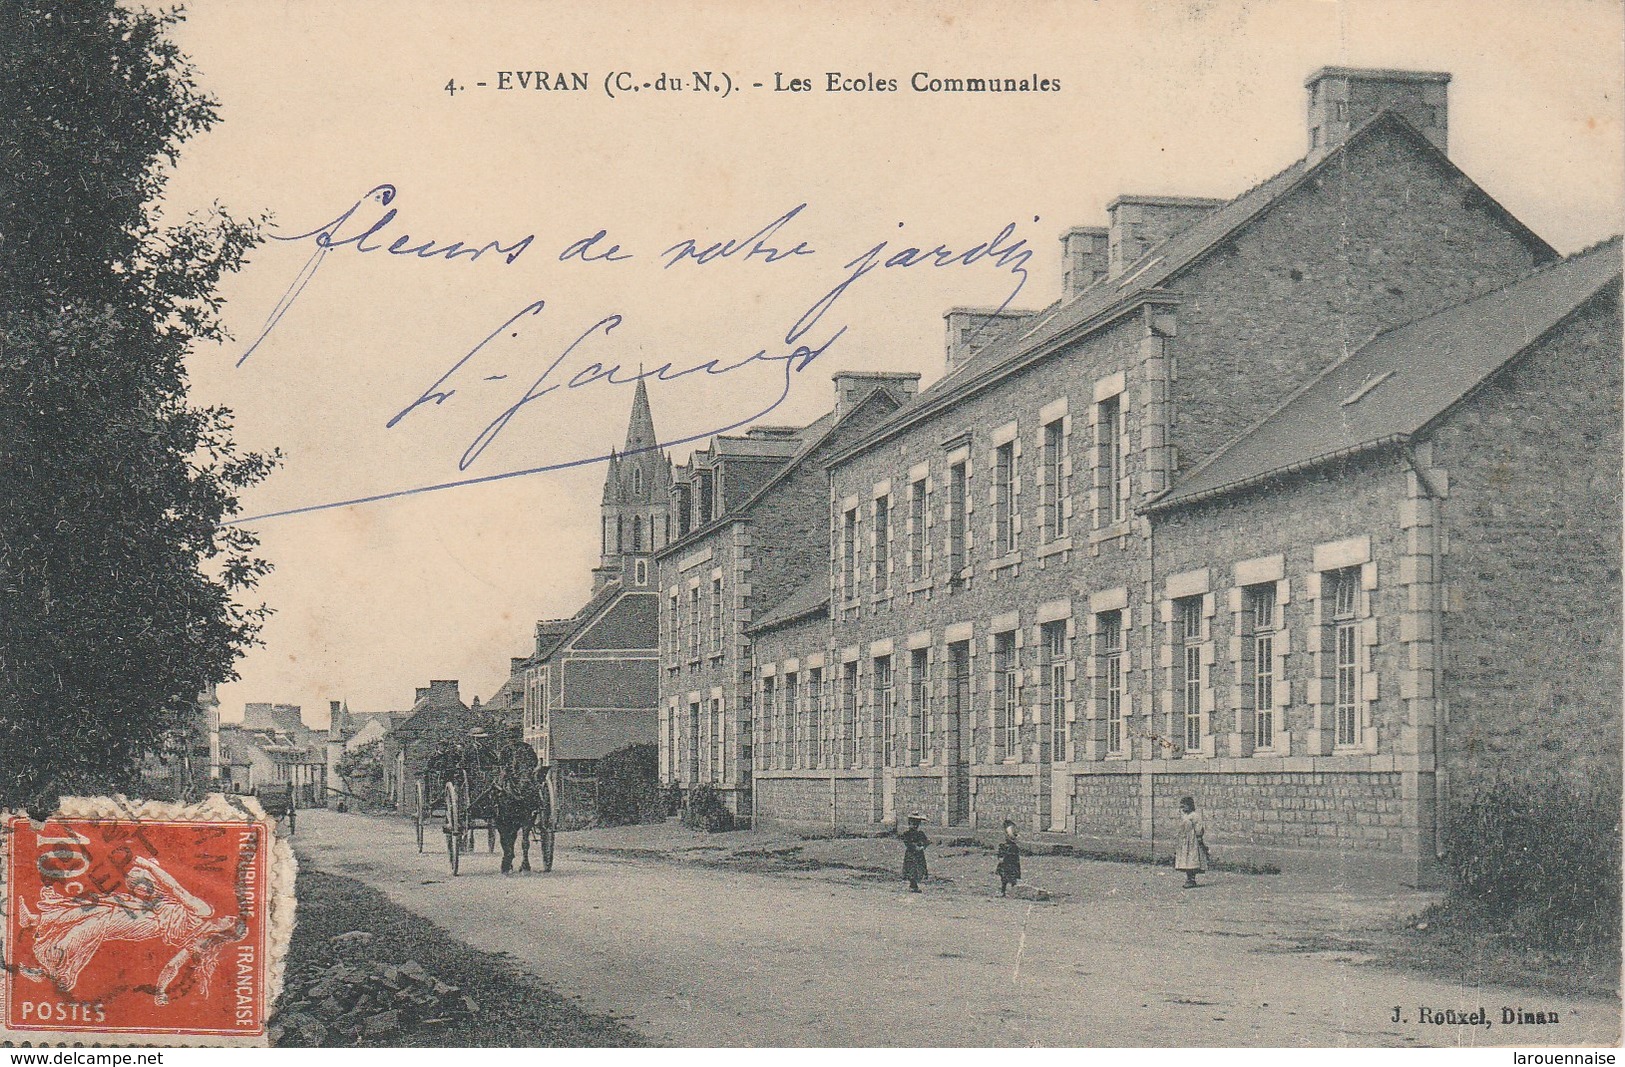 4. - EVRAN (C.-du-N.). - Les Ecoles Communales
fleurs de notre jardin
REPUBLIQUE FRANÇAISE
10 c
POSTES
J. Rouxel, Dinan
www.delcampe.net
larouennaise